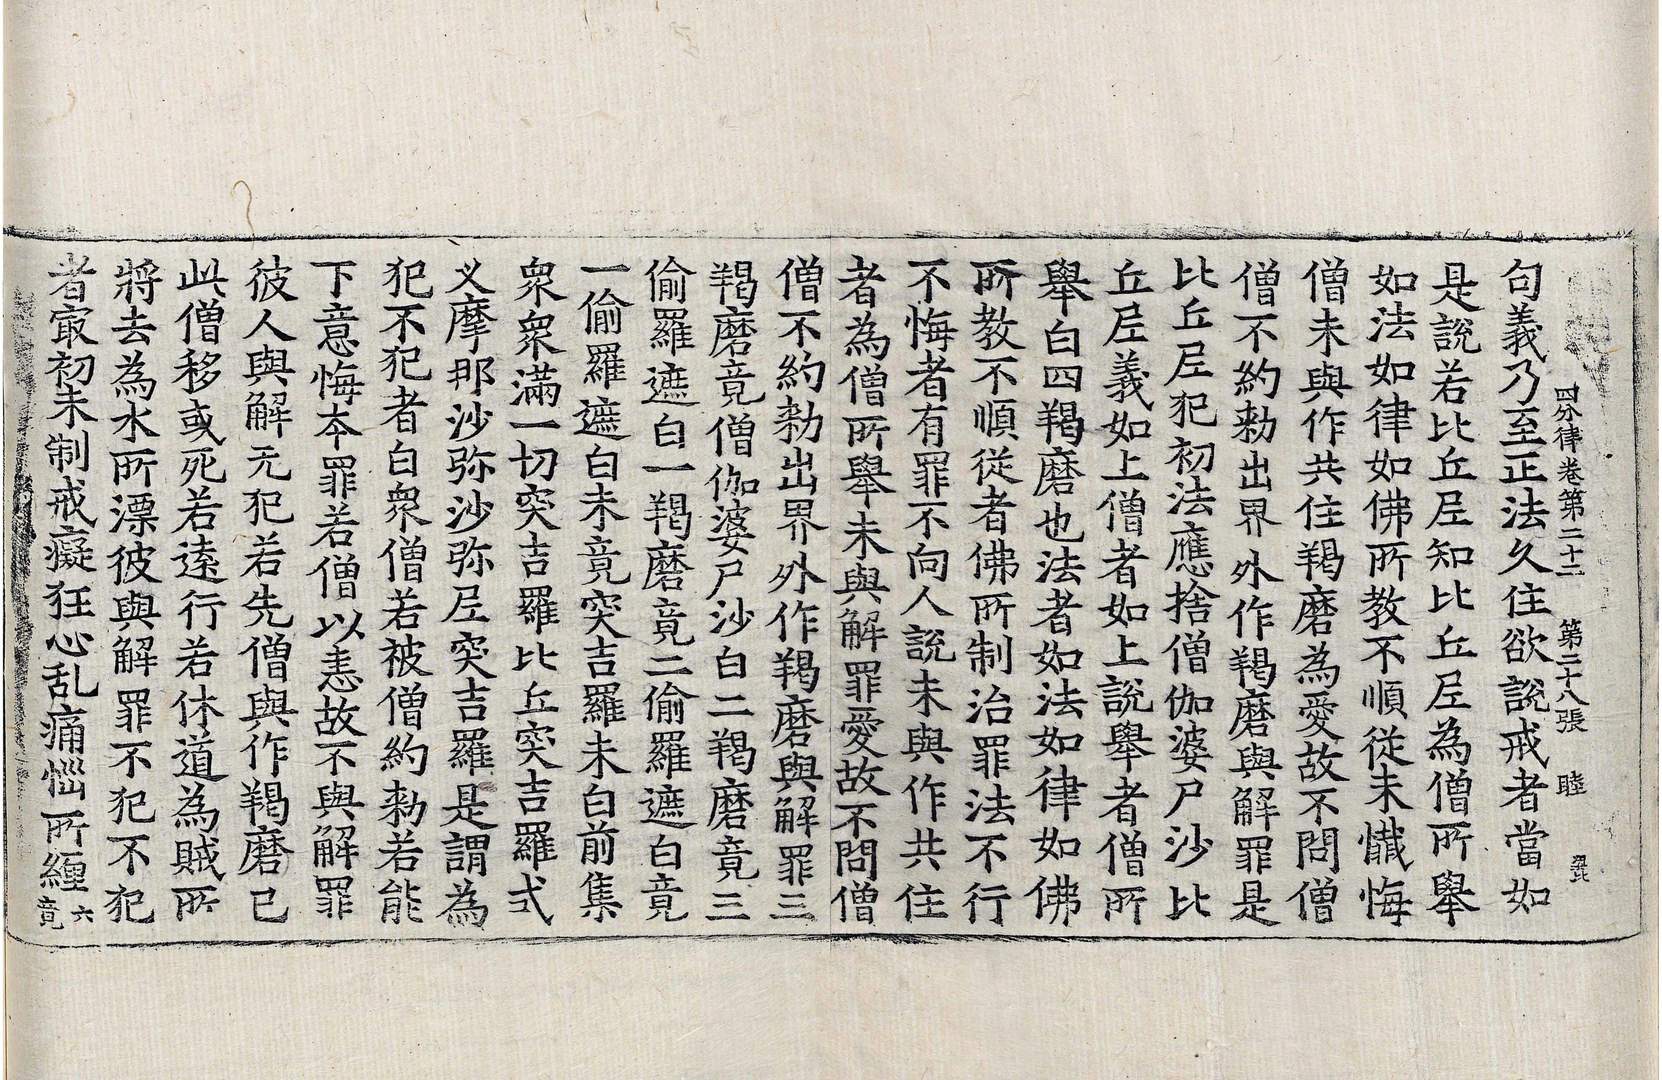 四分律卷第二十二 第二十八張 睦
句義乃至正法久住欲說戒者當如
是說若比丘尼知比丘尼為僧所舉
如法如律如佛所教不順從未懺悔
僧未與作共住羯磨為愛故不問僧
僧不約勑出界外作羯磨與解罪是
比丘尼犯初法應捨僧伽婆尸沙比
丘尼義如上僧者如上說舉者僧所
舉白四羯磨也法者如法如律如佛
所教不順從者佛所制治罪法不行
不悔者有罪不向人說未與作共住
者為僧所舉未與解罪愛故不問僧
僧不約勑出界外作羯磨與解罪三
羯磨竟僧伽婆尸沙白二羯磨竟三
偷羅遮白一羯磨竟二偷羅遮白竟
一偷羅遮白未竟突吉羅未白前集
衆衆滿一切突吉羅比丘突吉羅式
义摩那沙弥沙弥尼突吉羅是謂為
犯不犯者白衆僧若被僧約勑若能
下意悔夲罪若僧以恚故不與解罪
彼人與解无犯若先僧與作羯磨已
此僧移或死若遠行若休道為賊所
將去為水所漂彼與解罪不犯不犯
者寂初未制戒癡狂心乱痛惱所纏六竟